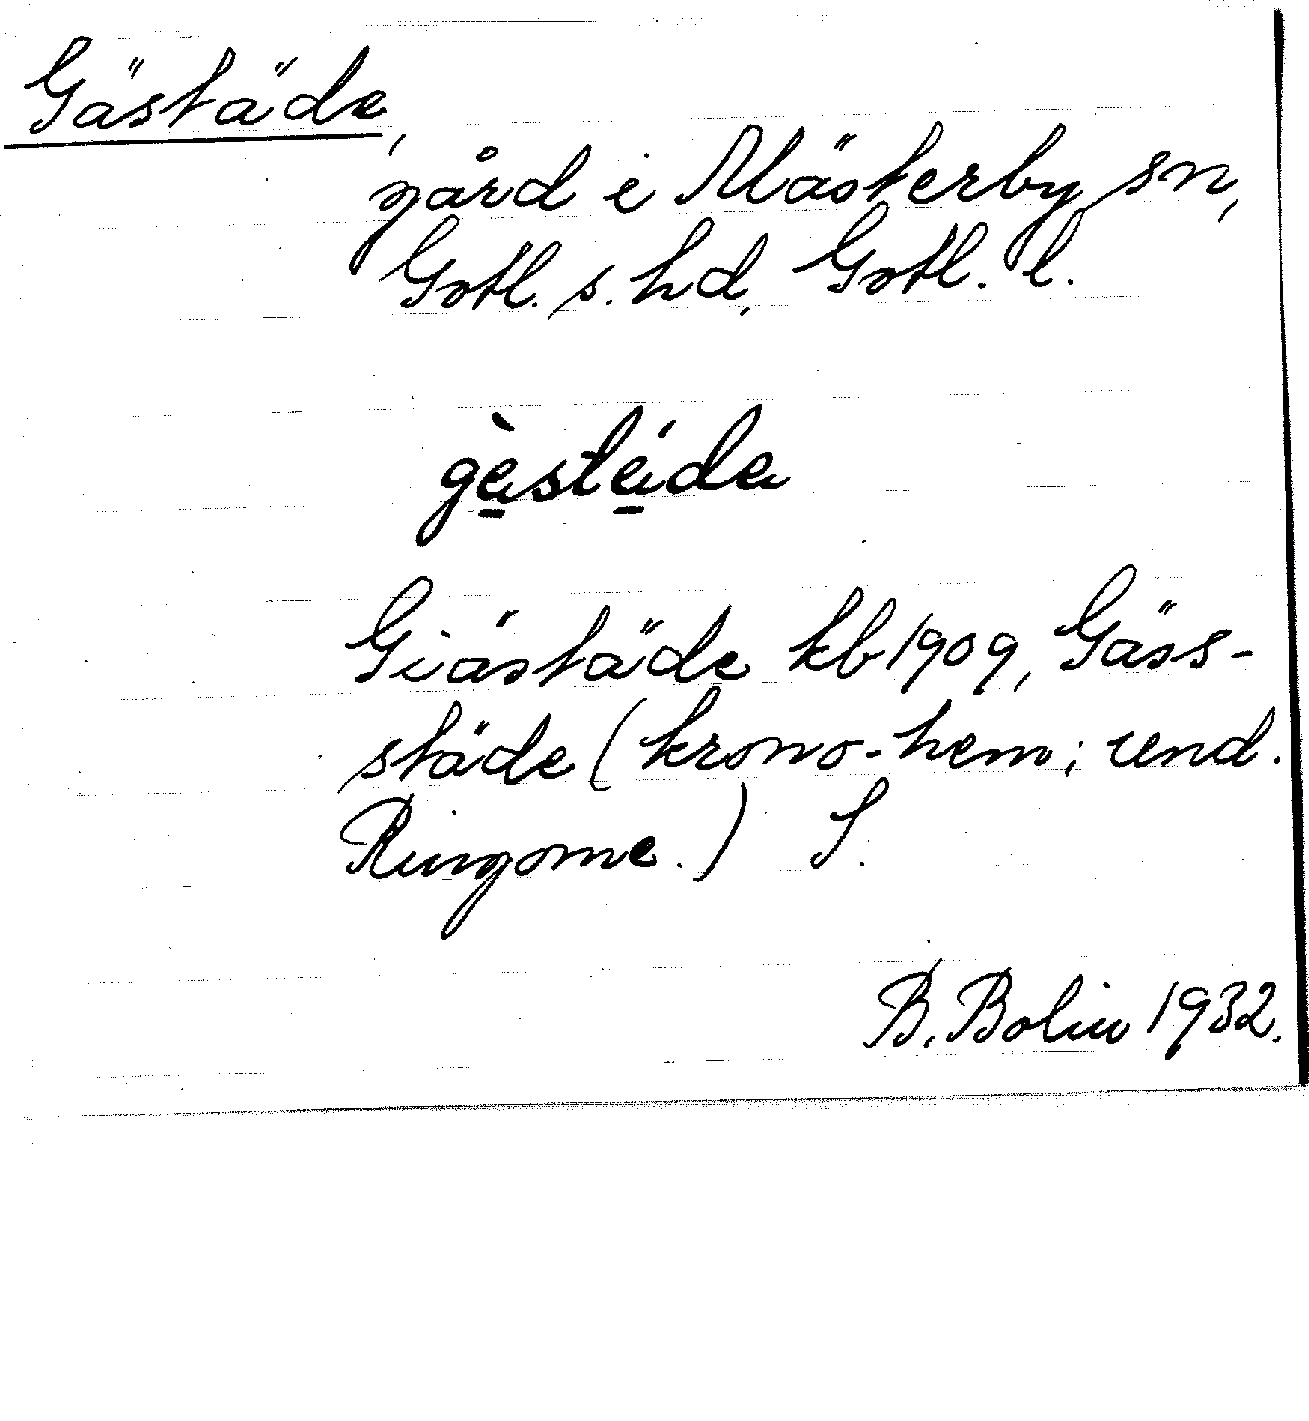 Gästäde,
gård i Mästerby sn,
Gotl. s. hd, Gotl. l.
gàstáda
Giästäde kb 1909, Gäss-
städe (krono-hem; und.
Ringome.) S.
B. Bolin 1932.